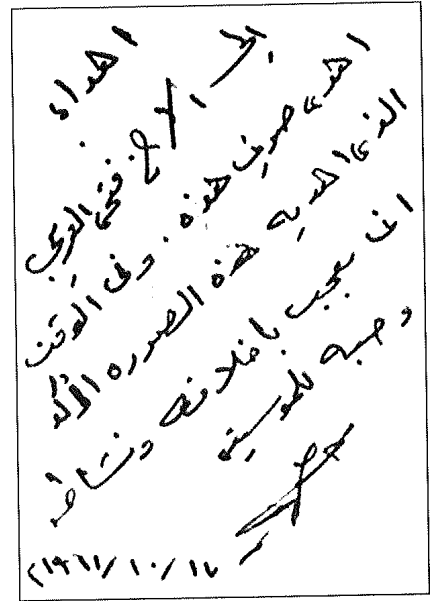 اهداء
إلى الأخ فتحي العريبي
اهدي صورتي هذه . وفي الوقت
الذي اهديه هذه الصوره الأكد
اني معجب باخلاقه ونشاطه
وحبه للموسيقى
١٩٦١/١٠/١٧